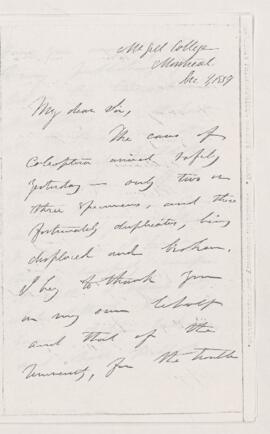 McGill College
Montreal
Dec 1, 1859
My dear Sir,
The cases of
Coleoptera arrived safely
yesterday — only two or
three specimens, and these
fortunately duplicates, being
displaced and broken.
I beg to thank you
on my own behalf
and that of the
University, for the trouble